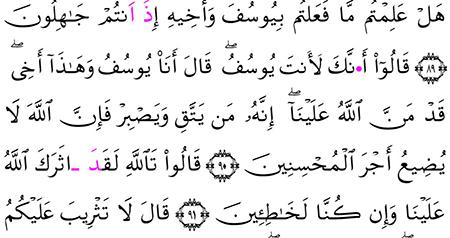 هَلْ عَلِمْتُم مَّا فَعَلْتُم بِيُوسُفَ وَأَخِيهِ إِذَ اَنتُمْ جَٰهِلُونَ
۝٨٩ قَالُوٓاْ أَ•نَّكَ لَأَنتَ يُوسُفُۖ قَالَ أَنَا۠ يُوسُفُ وَهَٰذَآ أَخِىۖ
قَدْ مَنَّ ٱللَّهُ عَلَيْنَآۖ إِنَّهُۥ مَن يَتَّقِ وَيَصْبِرْ فَإِنَّ ٱللَّهَ لَا
يُضِيعُ أَجْرَ ٱلْمُحْسِنِينَ ۝٩٠ قَالُواْ تَٱللَّهِ لَقَدَ ـ اثَرَكَ ٱللَّهُ
عَلَيْنَا وَإِن كُنَّا لَخَٰطِـِٔينَۖ ۝٩١ قَالَ لَا تَثْرِيبَ عَلَيْكُمُۖ